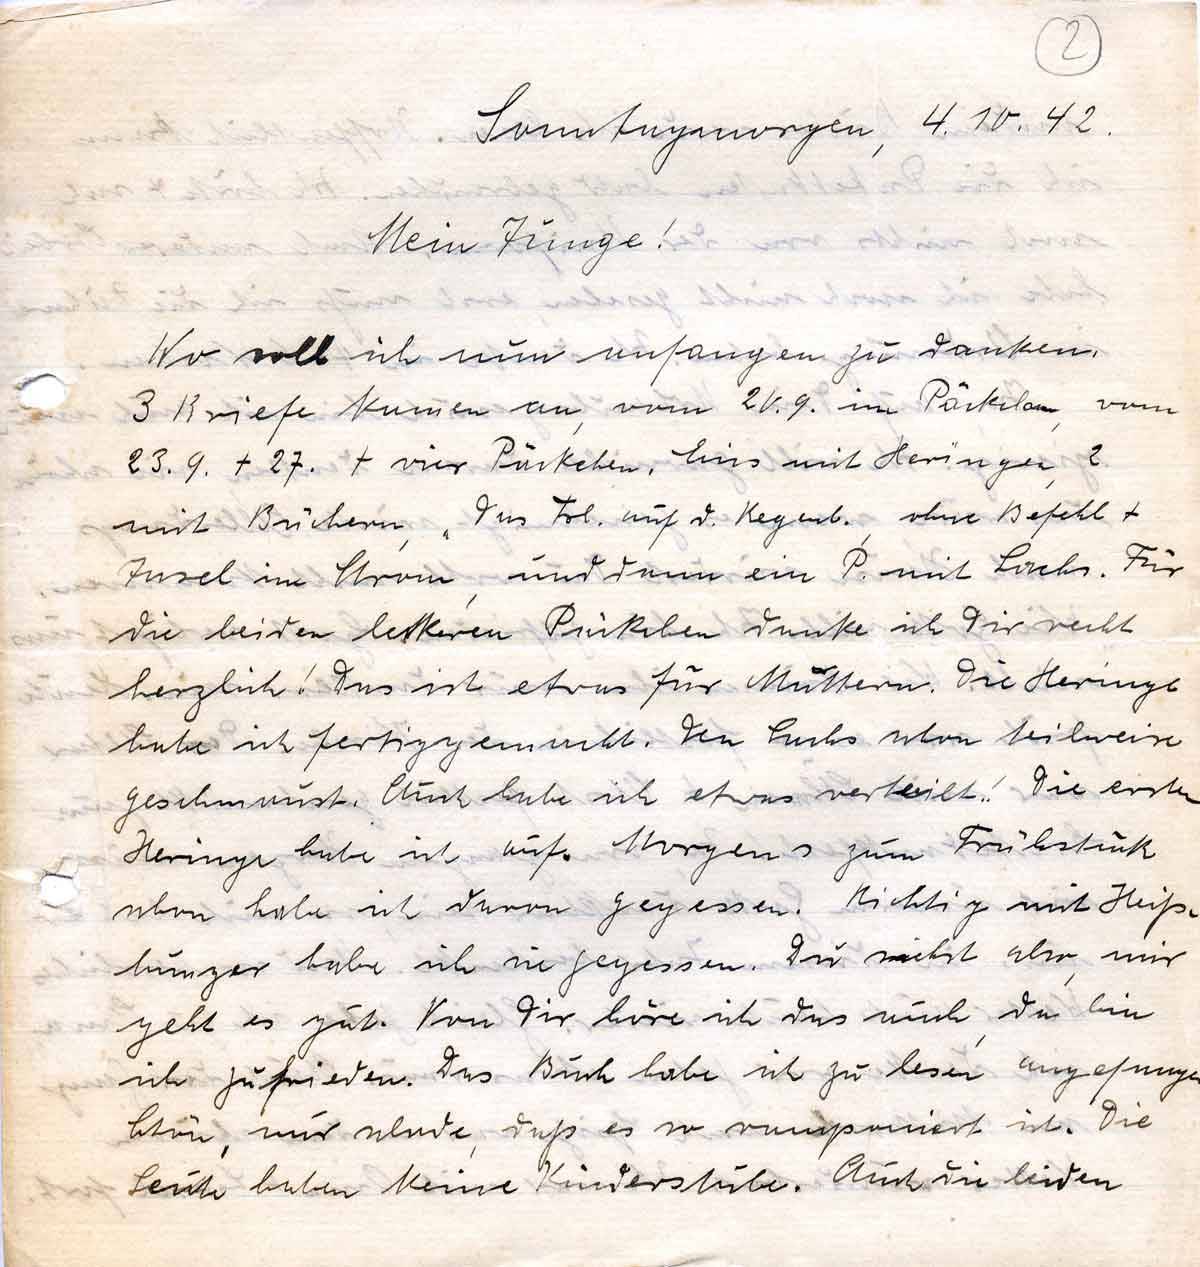 2
Sonntagmorgen, 4.10.42.
Mein Junge!
Wo soll ich nun anfangen zu danken.
3 Briefe kamen an, vom 20.9. im Päckchen, vom
23.9. + 27. + vier Päckchen. Eins mit Heringen, 2
mit Büchern, „Das Frl. auf d. Regenb., ohne Befehl +
Insel im Strom, und dann ein P. mit Lachs. Für
die beiden leckeren Päckchen danke ich Dir recht
herzlich! Das ist etwas für Muttern. Die Heringe
habe ich fertiggemacht. Den Lachs schon teilweise
geschmaust. Auch habe ich etwas verteilt!! Die ersten
Heringe habe ich auf. Morgens zum Frühstück
schon habe ich davon gegessen. Richtig mit Heiß-
hunger habe ich sie gegessen. Du siehst also, mir
geht es gut. Von Dir höre ich das auch, da bin
ich zufrieden. Das Buch habe ich zu lesen angefangen
Schön, nur schade, daß es so ramponiert ist. Die
Leute haben keine Kinderstube. Auch die beiden